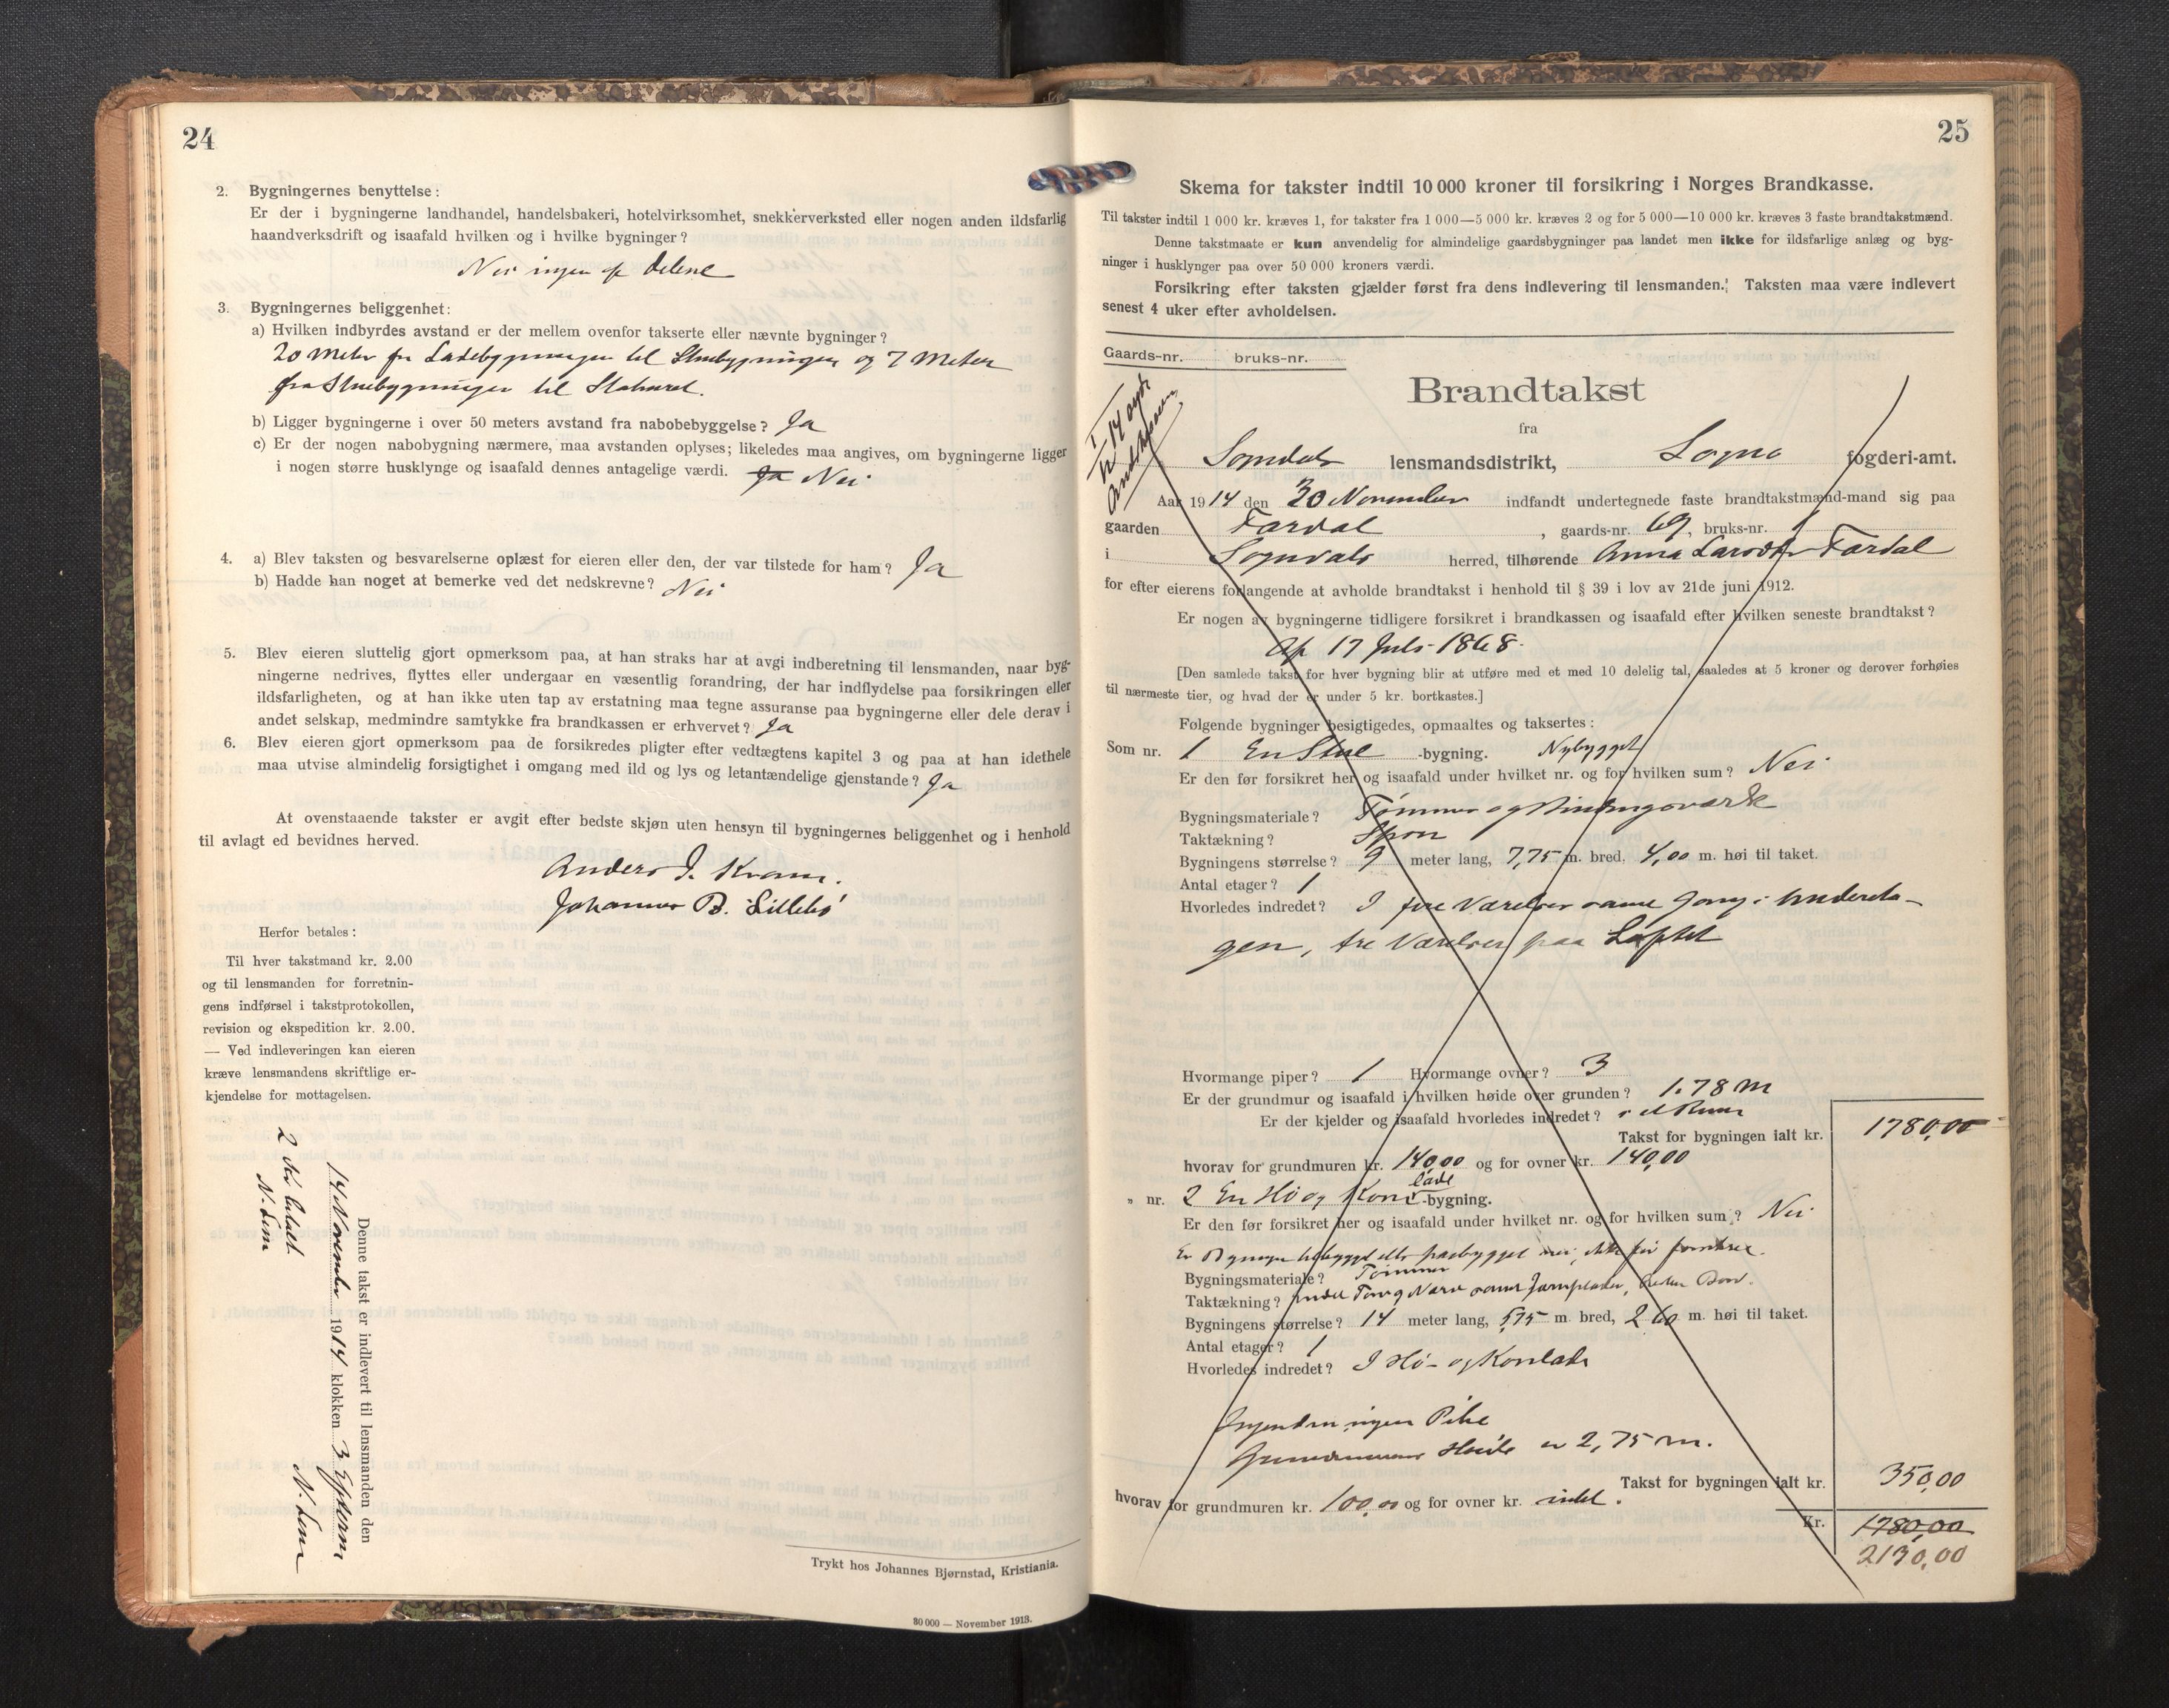 24
2. Bygningernes benyttelse:
Er der i bygningerne landhandel, handelsbakeri, hotelvirksomhet, snekkerverksted eller nogen anden ildsfarlig
haandverksdrift og isaafald hvilken og i hvilke bygninger?
Nei ingen af delene
3. Bygningernes beliggenhet:
a) Hvilken indbyrdes avstand er der mellem ovenfor takserte eller nævnte bygninger?
20 Meter fra Ladebygningen til Stuebygningen og 7 Meter
fra Stuebygningen til Staburet.
b) Ligger bygningerne i over 50 meters avstand fra nabobebyggelse? Ja
c) Er der nogen nabobygning nærmere, maa avstanden oplyses; likeledes maa angives, om bygningerne ligger
i nogen større husklynge og isaafald dennes antagelige værdi. Ja Nei
4. a) Blev taksten og besvarelserne oplæst for eieren eller den, der var tilstede for ham? Ja
b) Hadde han noget at bemerke ved det nedskrevne? Nei
5. Blev eieren sluttelig gjort opmerksom paa, at han straks har at avgi indberetning til lensmanden, naar byg-
ningerne nedrives, flyttes eller undergaar en væsentlig forandring, der har indflydelse paa forsikringen eller
ildsfarligheten, og at han ikke uten tap av erstatning maa tegne assuranse paa bygningerne eller dele derav i
andet selskap, medmindre samtykke fra brandkassen er erhvervet? Ja
6. Blev eieren gjort opmerksom paa de forsikredes pligter efter vedtægtens kapitel 3 og paa at han idethele
maa utvise almindelig forsigtighet i omgang med ild og lys og letantændelige gjenstande? Ja
At ovenstaaende takster er avgit efter bedste skjøn uten hensyn til bygningernes beliggenhet og i henhold
til avlagt ed bevidnes herved.
Anders J. Kvam.
Johannes B. Lillebø
Herfor betales:
Til hver takstmand kr. 2.00
og til lensmanden for forretnin-
gens indførsel i takstprotokollen,
revision og ekspedition kr. 2.00.
— Ved indleveringen kan eieren
kræve lensmandens skriftlige er-
kjendelse for mottagelsen.
Denne takst er indlevert til lensmanden den
14 November 1914 klokken 3 Efterm
N. Lem
2 Kr betalt
N. Lem
Trykt hos Johannes Bjørnstad, Kristiania.
30 000 — November 1913.
25
Skema for takster indtil 10 000 kroner til forsikring i Norges Brandkasse.
Til takster indtil 1 000 kr. kræves 1, for takster fra 1 000—5 000 kr. kræves 2 og for 5 000—10 000 kr. kræves 3 faste brandtakstmænd.
Denne takstmaate er kun anvendelig for almindelige gaardsbygninger paa landet men ikke for ildsfarlige anlæg og byg-
ninger i husklynger paa over 50 000 kroners værdi.
Forsikring efter taksten gjælder først fra dens indlevering til lensmanden. Taksten maa være indlevert
senest 4 uker efter avholdelsen.
Gaards-nr. bruks-nr.
Brandtakst
fra
Sogndals lensmandsdistrikt, Sogns fogderi-amt.
Aar 1914 den 30 November indfandt undertegnede faste brandtakstmænd-mand sig paa
gaarden Fardal, gaards-nr. 69, bruks-nr. 1
i Sogndals herred, tilhørende Anna Larsdtr Fardal
for efter eierens forlangende at avholde brandtakst i henhold til § 39 i lov av 21de juni 1912.
Er nogen av bygningerne tidligere forsikret i brandkassen og isaafald efter hvilken seneste brandtakst?
Af 17 Juli 1868.
[Den samlede takst for hver bygning blir at utføre med et med 10 delelig tal, saaledes at 5 kroner og derover forhøies
til nærmeste tier, og hvad der er under 5 kr. bortkastes.]
Følgende bygninger besigtigedes, opmaaltes og taksertes:
Som nr. 1 En Stue -bygning. Nybygget
Er den før forsikret her og isaafald under hvilket nr. og for hvilken sum? Nei
Bygningsmateriale? Tømmer og Bindingsværk
Taktækning? Spon
Bygningens størrelse? 9 meter lang, 7,75 m. bred, 4,00 m. høi til taket.
Antal etager? 1
Hvorledes indredet? I fire Værelser samt Gang i Undereta-
gen, tre Værelser paa Loftet
Hvormange piper? 1 Hvormange ovner? 3
Er der grundmur og isaafald i hvilken høide over grunden? 1.78 m
Er der kjelder og isaafald hvorledes indredet? i et Rum
Takst for bygningen ialt kr. 1780,00
hvorav for grundmuren kr. 140,00 og for ovner kr. 140,00
" nr. 2 En Hø og Korn lade -bygning.
Er den før forsikret her og isaafald under hvilket nr. og for hvilken sum? Nei
Er Bygningen eller paabygget nei, ikke før
Bygningsmateriale? Tømmer
Taktækning?
Bygningens størrelse? 14 meter lang, 5,75 m. bred, 2 60 m. høi til taket.
Antal etager? 1
Hvorledes indredet? I Hø- og Kornlade
Ingen Pibe
Grundmurens Høide er 2,75 m.
Takst for bygningen ialt kr. 350,00
hvorav for grundmuren kr. 100,00 og for ovner kr. intet.
Kr. 1780,00
2130,00